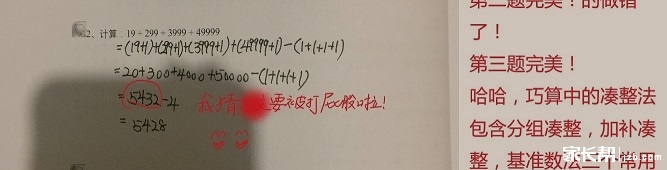 2、计算：19 + 299 + 3999 + 49999
=(19+1)+(299+1)+(3999+1)+(49999+1)-(1+1+1+1)
=20+300+4000+50000-(1+1+1+1)
=5432-4
=5428
我猜要被打屁股啦！
第二题完美！的做错
了！
第三题完美！
哈哈，巧算中的凑整法
包含分组凑整，加补凑
整，基准数法三个常用
家长帮
jzb.com